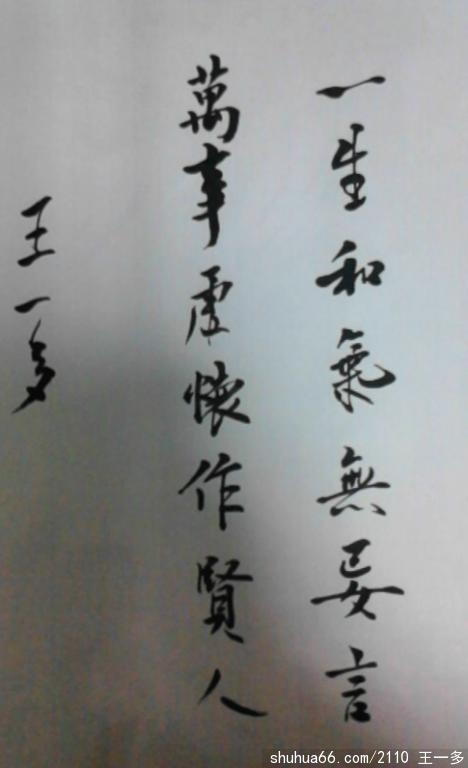 一生和氣無妄言
萬事虛懷作賢人
王一多
shuhua66.com/2110 王一多